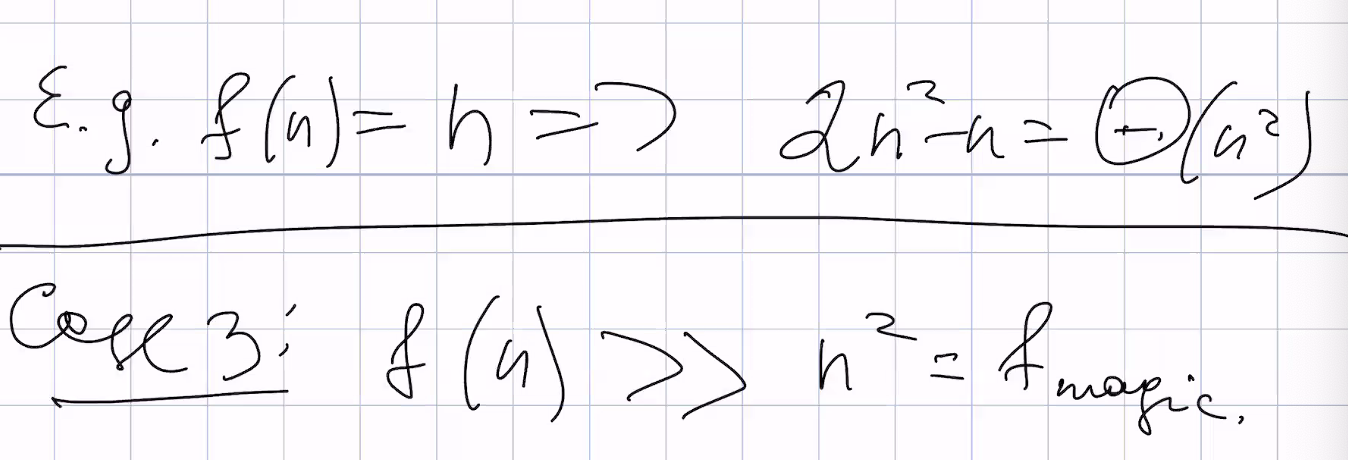 E.g. f(n) = n => 2n²-n = Θ(n²)
Case 3: f(n) >> n² = f_magic.